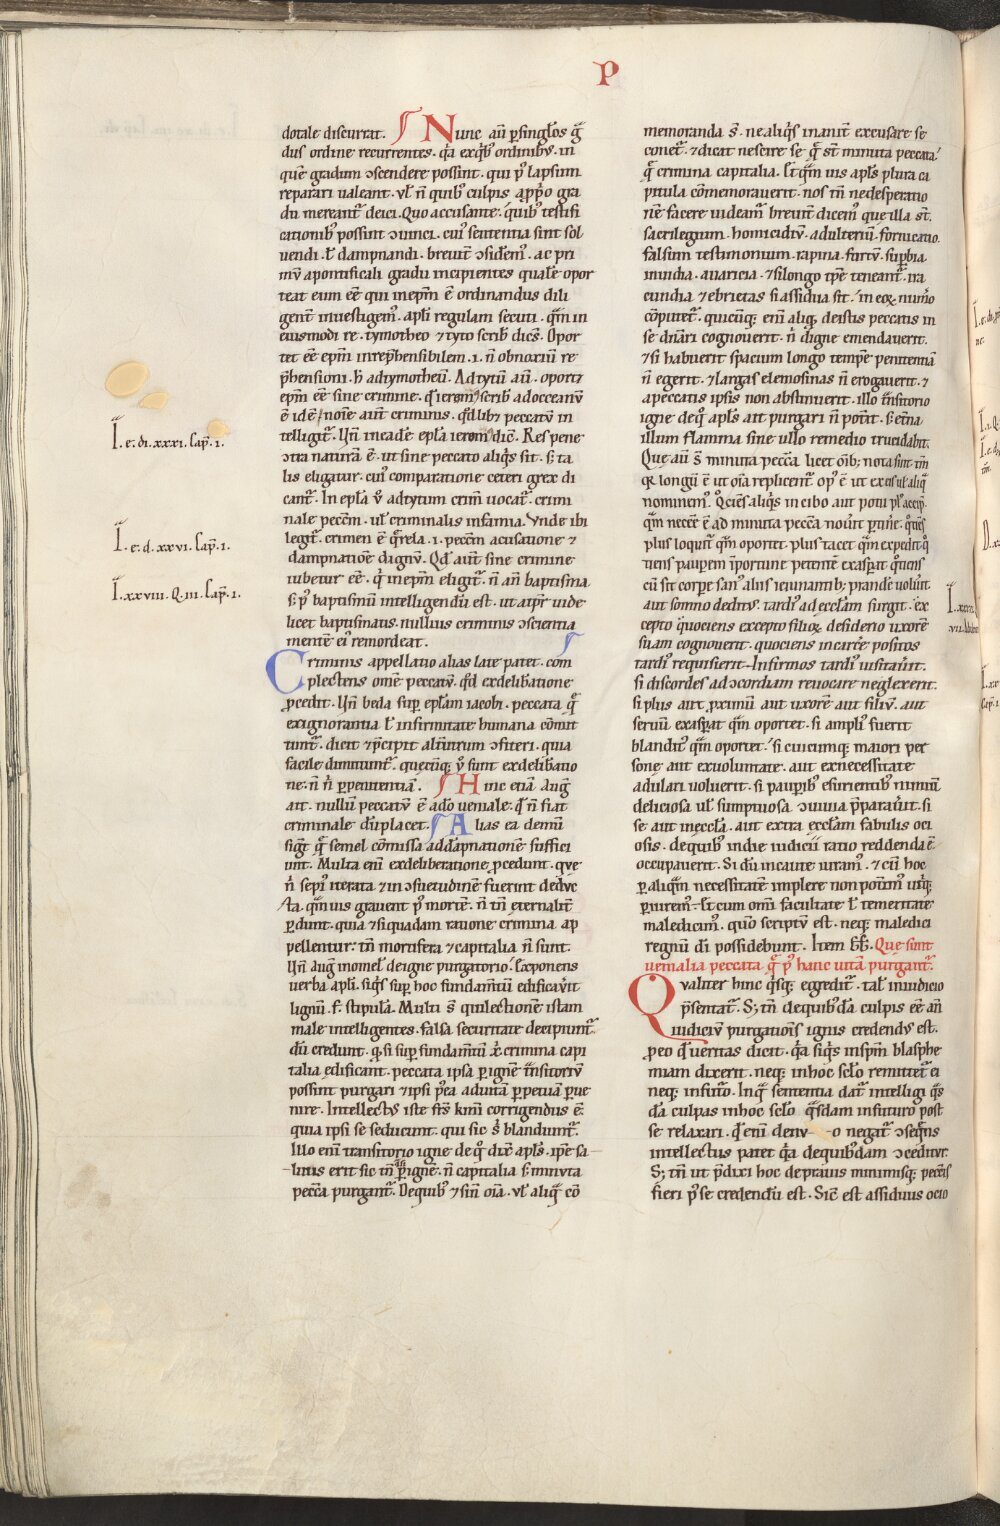 P
dotale discurrat. Nunc aũ ꝑsingłos g̃
dus ordine recurrentes. q̃a exq̃bꝰ ordinibꝰ. in
quẽ gradum ↄscendere possint. qui pꝰ lapsum
reparari ualeant. uł ñ quibꝰ culpis aꝓpo gra
du mereant̃ deici. Quo accusante. quibꝰ testifi
cationibꝰ possint ↄuinci. cuiꝰ sententia sint sol
vendi. ł dampnandi. breuit̃ ↄsidẽmꝰ. ac pri
mũ apontificali gradu incipientes qualẽ opor
teat eum eẽ qui inepm̃ ẽ ordinandus dili
gent̃ inuestigemꝰ. apłi regulam secuti. qm̃ in
eiusmodi re. tymotheo ⁊ tyto scribẽ dicẽs. Opor
tet eẽ epm̃ inrep̃hensibilem .i. ñ obnoxiũ re
p̃hensioni. h̃ adtymotheũ. Adtytũ aũ. oportꝫ
epm̃ eẽ sine crimine. q̃ ieroñ scribẽ adocceanũ
ẽ idẽ noĩe aut̃ criminis. q̃dlibꝫ peccatũ in
telligit̃. Uñ incadẽ epła ieroñ dic̃. Res pene
ↄtra naturã ẽ. ut sine peccato aliq̃s sit. s; ta
lis eligatur. cuiꝰ comparatione ceteri grex di
cant̃. In epła ũ adtytum crim̃ uocat̃. crimi
nale pecc̃m. uł criminalis infamia. Vnde ibi
legit̃. crimen ẽ q̃rela .i. pecc̃m acusatione ⁊
dampnatiõe dignũ. Qd̃ aut̃ sine crimine
iubetur eẽ. q̃ inepm̃ eligit̃. ñ añ baptisma
s; pꝰ baptismũ intelligendũ est. ut aip̃r uide
licet baptismatis nullius criminis ↄscientia
mentẽ eiꝰ remordeat.
Criminis appellatio alias late patet. com
plectens omẽ peccatũ. qd̃ exdelibatione
ꝓcedit. Uñ beda suꝑ epłam iacobi. peccata q̃
exignorantia ł infirmitate humana cõmit
tunt̃. dicit ⁊ p̃cipit alt̃utrum ↄfiteri. quia
facile dimittunt̃. quecũq; ũ sunt exdelibatio
ne. ñ ñ ꝑ penitentiã. Hinc etiã Aug̃
ait. nullũ peccatũ ẽ adeo ueniale. q̃ ñ fiat
criminale dũ placet. Alias ea demũ
sig̃t q̃ semel cõmissa addãpnationẽ suffici
unt. Multa eni exdeliberatione ꝓcedunt. que
ñ sepiꝰ iterata ⁊ in ↄsuetudinẽ fuerint dedvc
ta. qm̃uis grauent pꝰ mortẽ. ñ tñ eternalit̃
ꝑdunt. quia ⁊ siquadam ratione crimina ap
pellentur. tñ mortifera ⁊ capitalia ñ sunt.
Uñ Aug̃ inomeł deigne purgatorio. Exponens
uerba apłi. siq̃s suꝑ hoc fundamtũ edificauit
lignũ. f. stipulã. Multi s̃ quilectionẽ istam
male intelligentes. falsa securitate decipiunt̃.
dũ credunt. q̃ si suꝑ fundamtũ x̃ crimina capi
talia edificant. peccata ipsa ꝑ ignẽ t̃nsitoriũ
possint purgari ⁊ ipsi p̃ea aduitã ꝑpetuã ꝑue
nire. Intellectꝰ iste fr̃s kmi corrigendus ẽ.
quia ipsi se seducunt. qui sic s̃ blandiunt̃.
Illo eni transitorio igne de q̃ dix̃ apłs. ipẽ sa
luus erit sic tñ ꝑ ignẽ. ñ capitalia s; minuta
pecc̃a purgant̃. Dequibꝰ ⁊ sim̃ oĩa. uł aliq̃ cõ
memoranda s̃. ne aliq̃s inanit̃ excusare se
conet̃. ⁊ dicat nescire se q̃ st̃ minuta peccata.
q̃ crimina capitalia. Et qm̃ uis apłs plura ca
pitula cõmemorauerit. nos tñ nedesperatio
nẽ facere uideam̃ breuit̃ dicemꝰ que illa st̃.
sacrilegium. homicidiũ. adulteriũ. fornicatio.
falsum testimonium. rapina. furtũ. suꝑbia.
inuidia. auaricia. ⁊ silongo tp̃e teneant̃. ira
cundia ⁊ ebrietas si assidua sit. in eoꝝ num̃o
cõputet̃. quicũq; eni aliq̃ deistis peccatis in
se dñari cognouerit. ñ digne emendauerit.
⁊ si habuerit spacium longo tempẽ penitentiã
ñ egerit. ⁊ largas elemosinas ñ erogauerit. ⁊
apeccatis ipsis non abstinuerit. illo t̃nsitorio
igne deq̃ apłs ait purgari ñ potit̃. s; etna
illum flamma sine ullo remedio trucidabit.
Que aũ s̃ minuta pecc̃a licet oĩb; nota sint tñ
q̃ longũ ẽ ut oĩa replicent̃ opꝰ ẽ ut ex eis uł aliq̃
nominemꝰ. Qciẽs aliq̃s in cibo aut potu plꝰ accip̃.
qm̃ necẽẽ ẽ ad minuta pecc̃a nouit̃ ꝑtiñe. q̃ciẽs
plus loquit̃ qm̃ oportet. plus tacet qm̃ expedit. q̃
tiens pauꝑem inportune petentẽ exasꝑat. q̃tiens
cũ sit corpe san̉ aliis ieiunantib; prandẽ voluit̃.
aut somno deditus. tardiꝰ ad eccłam surgit. ex
cepto quociens excepto filioꝝ desiderio uxorẽ
suam cognouerit. quociens in carcẽ positos
tardiꝰ requisierit. Infirmos tardiꝰ uisitauit̃.
si discordes ad ↄcordiam reuocare neglexerit.
si plus aut ꝓximũ aut uxorẽ aut filiũ. aut
seruũ exasꝑat qm̃ oportet. si ampliꝰ fuerit
blanditꝰ qm̃ oportet. si cuicumq; maiori per
sone aut exuoluntate. aut exnecessitate
adulari uoluerit. si pauꝑibꝰ esurientibꝰ nimiũ
deliciosa uł sumptuosa ↄuiuia p̃parauit̃. si
se aut ineccłã. aut extra eccłam fabulis oci
osis. dequibꝰ indie iudicii ratio reddenda ẽ.
occupauerit. Si dũ incaute iuramꝰ. ⁊ cũ hoc
ꝑ aliqm̃ necessitatẽ implere non potũmꝰ utiq;
ꝑiurem̃. Et cum omi facultate ł temeritate
maledicimꝰ. quõ scriptũ est. neq; maledici
regnũ dĩ possidebunt. Item GG. Que sunt
uenialia peccata q̃ pꝰ hanc uitã purgant̃.
Qvaliter hinc q̃sq; egredit̃. taľ iniudicio
p̃sentat̃. S; tñ dequibꝰda culpis eẽ añ
iudiciũ purgatiõis ignis credendꝰ est.
ꝓeo q̃ ueritas dicit. q̃a siq̃s inspm̃ blasphe
miam dixerit. neq; inhoc scło remittet̃ ei
neq; infut̃o. Inq̃ sententia dat̃ intelligi q̃s
dã culpas inhoc scło q̃sdam infuturo post
se relaxari. q̃ eni de un o negat̃ ↄseq̃ns
intellectus patet q̃a dequibꝰdam ↄceditur.
S; tñ ut p̃dixi hoc de prauis minimisq; pecc̃is
fieri p̃ se credendũ est. Sic̃ est assiduus ocio
I. e. di. xxxi. Cap̃. 1.
I. e. d. xxvi. Cap̃. 1.
I. xxviii. Q. iii. Cap̃. 1.